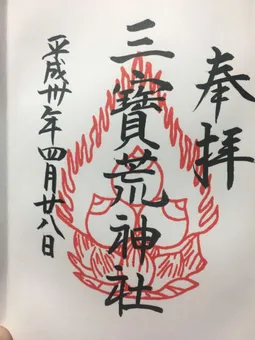 奉拝
三寶荒神社
平成卅年四月廿八日